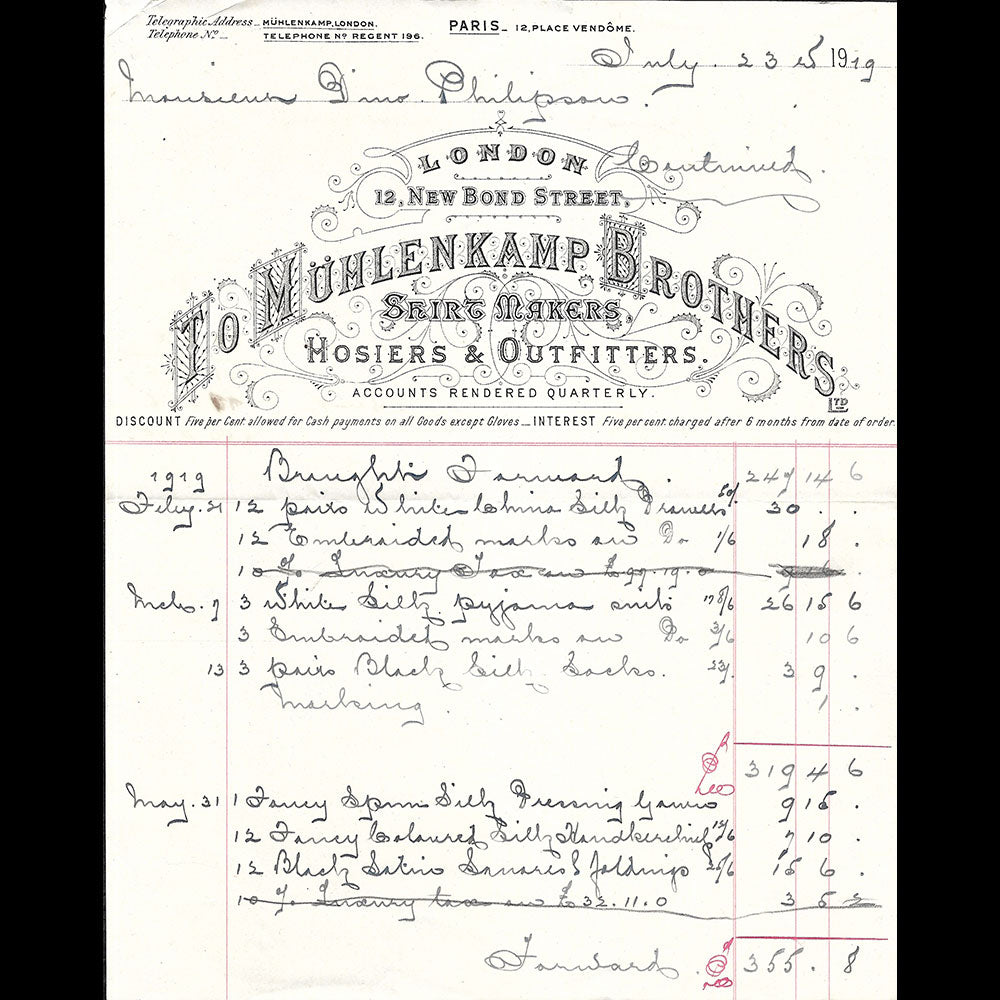 Telegraphic Address _ MÜHLENKAMP, LONDON.
Telephone No _ TELEPHONE No REGENT 196.
PARIS _ 12, PLACE VENDÔME.
July. 23 1919
Monsieur Dino Philipson.
Continued.
LONDON
12, NEW BOND STREET,
TO MÜHLENKAMP BROTHERS LTD
SHIRT MAKERS,
HOSIERS & OUTFITTERS.
ACCOUNTS RENDERED QUARTERLY.
DISCOUNT Five per Cent. allowed for Cash payments on all Goods except Gloves _ INTEREST Five per cent. charged after 6 months from date of order.
1919 Brought Forward. 247 14 6
Feby. 21 12 pairs White China Silk Drawers 50/. 30 . .
12 Embroided marks on Do 1/6 18 .
10 % Luxury Tax on £99.19.0
Mch. 7 3 White Silk pyjama suits 178/6 26 15 6
3 Embroided marks on Do 3/6 10 6
13 3 pairs Black Silk Socks. 23/. 3 9 .
Marking. 1 .
319 4 6
May. 31 1 Fancy Spun Silk Dressing Gown 9 15 .
12 Fancy Coloured Silk Handkerchief 12/6 7 10 .
12 Black Satin Squares & foldings 25/6 15 6 .
10 % Luxury tax on £32.11.0 3 5 2
Forward. 355 . 8